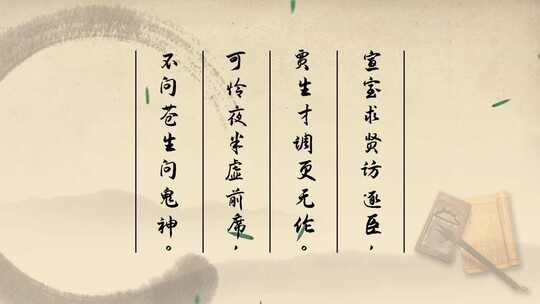 宣室求贤访逐臣，
贾生才调更无伦。
可怜夜半虚前席，
不问苍生问鬼神。